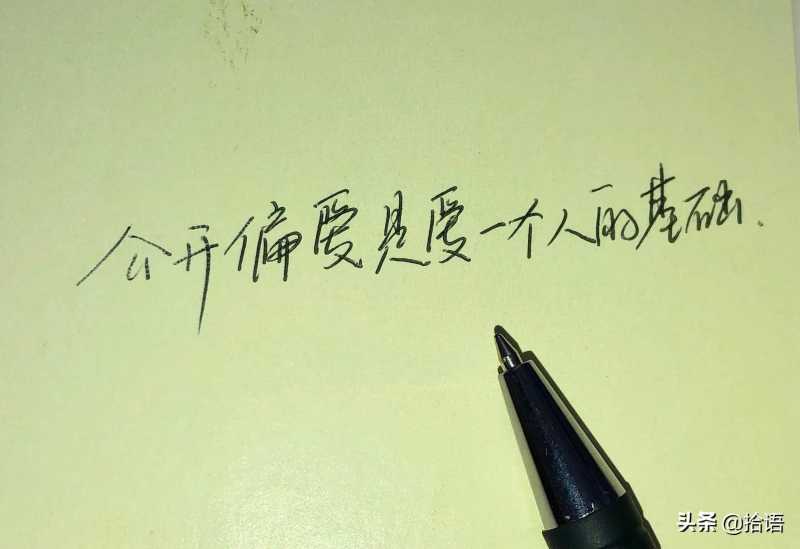 公开偏爱是爱一个人的基础.
头条 @拾语